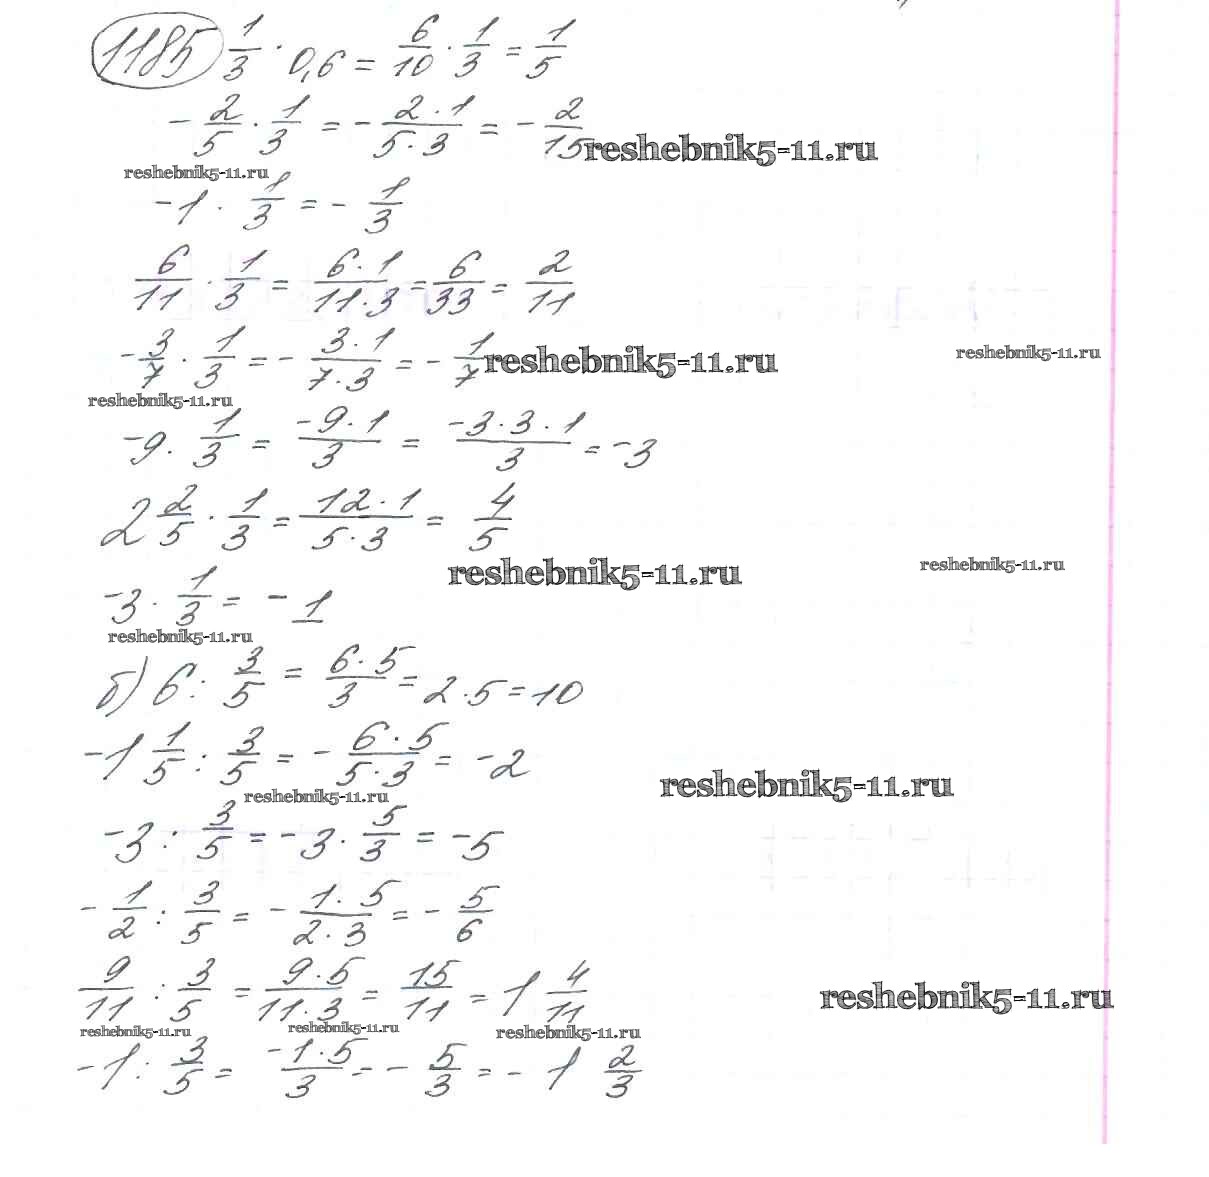 1185 1/3 · 0,6 = 6/10 · 1/3 = 1/5
- 2/5 · 1/3 = - 2·1/5·3 = - 2/15 reshebnik5-11.ru
reshebnik5-11.ru
-1 · 1/3 = - 1/3
6/11 · 1/3 = 6·1/11·3 = 6/33 = 2/11
- 3/7 · 1/3 = - 3·1/7·3 = - 1/7 reshebnik5-11.ru reshebnik5-11.ru
reshebnik5-11.ru
-9 · 1/3 = -9·1/3 = -3·3·1/3 = -3
2 2/5 · 1/3 = 12·1/5·3 = 4/5
reshebnik5-11.ru reshebnik5-11.ru
-3 · 1/3 = -1
reshebnik5-11.ru
б) 6 : 3/5 = 6·5/3 = 2·5 = 10
-1 1/5 : 3/5 = - 6·5/5·3 = -2
reshebnik5-11.ru reshebnik5-11.ru
-3 : 3/5 = -3 · 5/3 = -5
- 1/2 : 3/5 = - 1·5/2·3 = - 5/6
9/11 : 3/5 = 9·5/11·3 = 15/11 = 1 4/11 reshebnik5-11.ru
reshebnik5-11.ru reshebnik5-11.ru reshebnik5-11.ru
-1 : 3/5 = -1·5/3 = - 5/3 = - 1 2/3